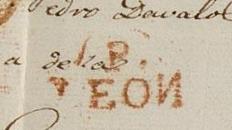 Pedro Davalos
a de la B.
LEON